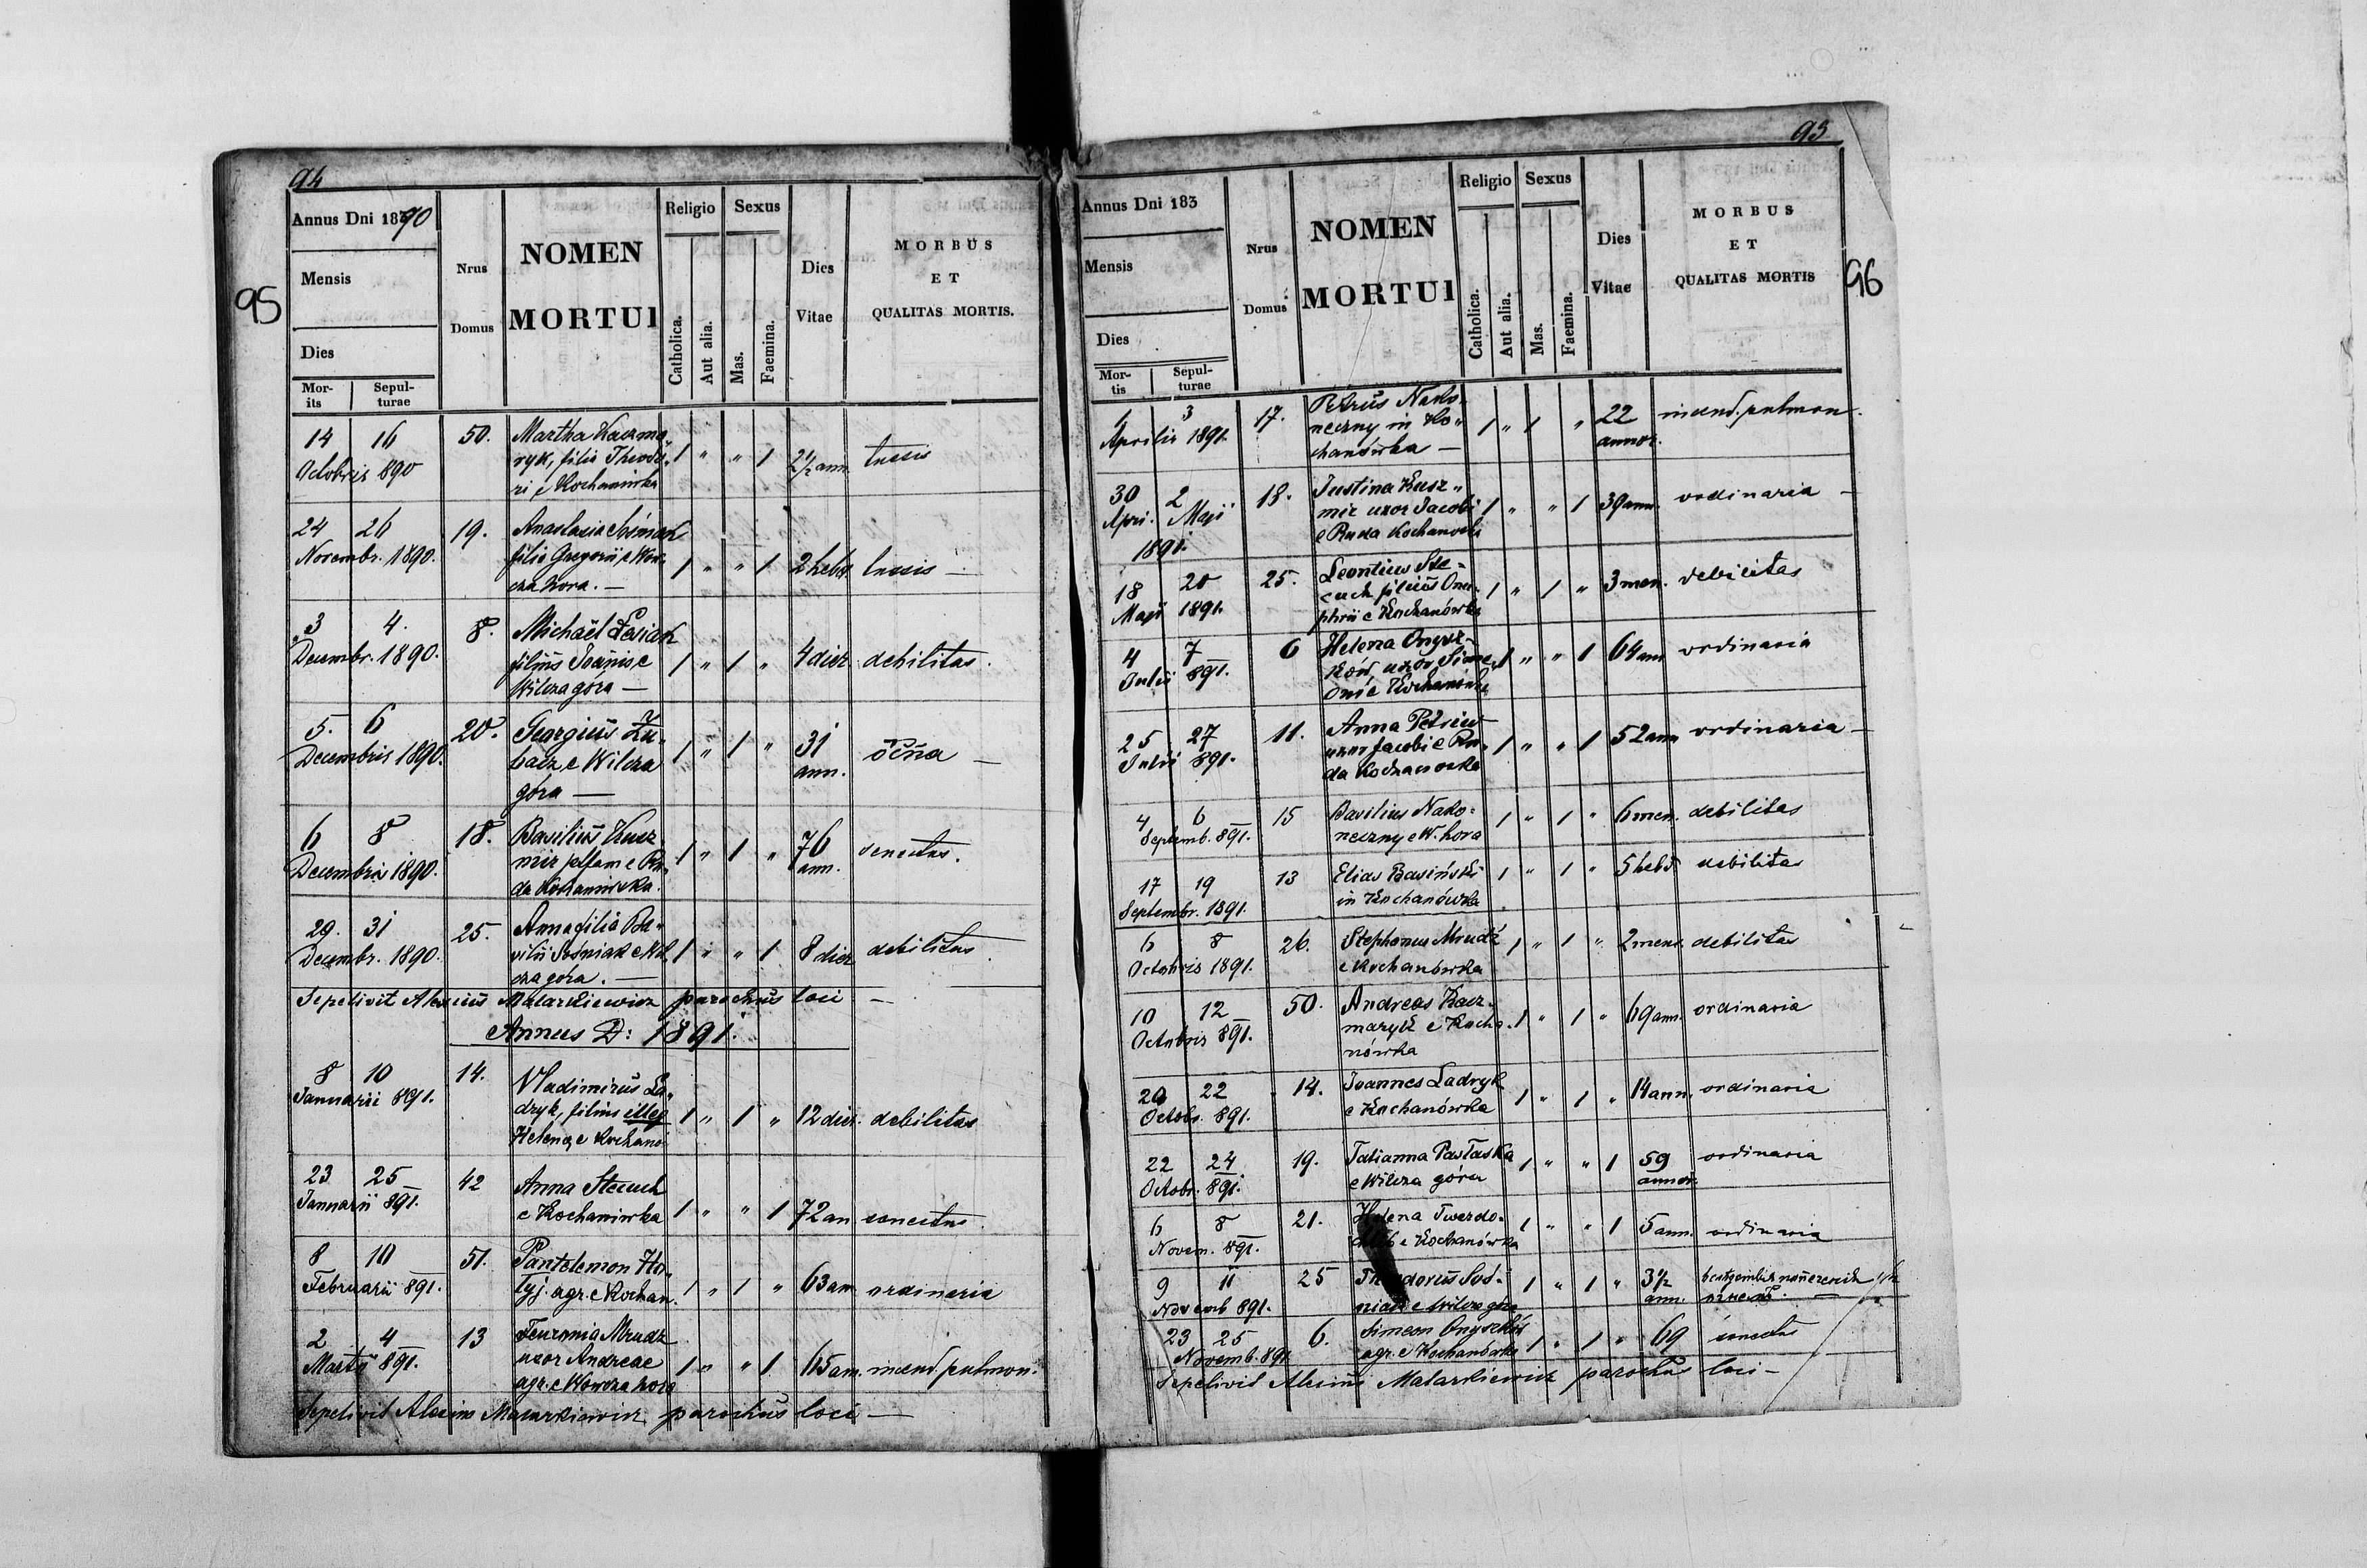 94
95
Annus Dni 1890
Mensis
Dies
Mor-
its
Sepul-
turae
Nrus
Domus
NOMEN
MORTUI
Religio
Catholica.
Aut alia.
Sexus
Mas.
Faemina.
Dies
Vitae
MORBUS
ET
QUALITAS MORTIS.
14 16 50. Martha Kaczma-
Octobris 890 ryk, filia Theodo- 1 " " 1 2½ ann. tussis
ri e Kochanówka
24 26 19. Anastasia Sośniak
Novembr. 1890. filia Gregorii e Wil-
cza hora. — 1 " " 1 2 hebd. tussis —
3 4. 8. Michaël Łasiak
Decembr. 1890. filius Joannis e 1 " 1 " 4 dier. debilitas.
Wilcza góra —
5. 6 20. Georgius Zu-
Decembris 1890. bacz, e Wilcza 1 " 1 " 31 ann.
góra —
6 8 18. Basilius Kuz-
Decembris 1890. mir e Ru- 1 " 1 " 76 ann. senectus.
da Kochanowska.
29. 31 25. Anna filia Ba-
Decembr. 1890. silii Sośniak e Wil- 1 " " 1 8 dier. debilitas.
cza góra. —
Sepelivit Alexius Matarkiewicz parochus loci —
Annus D: 1891.
8 10 14. Vladimirus La-
Januarii 891. dryk, filius illeg 1 " 1 " 12 dier. debilitas
Helenae e Kochanó
23 25 42 Anna Stecuch
Januarii 891. e Kochanówka 1 " " 1 72 an senectus.
8 10 51. Pantelemon Ho-
Februarii 891. tyj. agr. e Kochan. 1 " 1 " 63 an ordinaria
2 4 13 Feuronia Mrudz
Martii 891. uxor Andreae 1 " " 1 65 an. incend. pulmon.
agr. e hora
Sepelivit Alexius Matarkiewicz parochus loci —
95
96
Annus Dni 183
Mensis
Dies
Mor-
tis
Sepul-
turae
Nrus
Domus
NOMEN
MORTUI
Religio
Catholica.
Aut alia.
Sexus
Mas.
Faemina.
Dies
Vitae
MORBUS
ET
QUALITAS MORTIS
1 3 17. Petrus Nako-
Aprilis 1891. neczny in Ko- 1 " 1 " 22 annor. incend. pulmon.
chanówka —
30 2 18. Justina Kuz-
Apri. Maji mir uxor Jacobi 1 " " 1 39 ann. ordinaria —
1891. e Ruda Kochanowski
18 20 25. Leontius Ste-
Maji 1891. cuch filius Onu- 1 " 1 " 3 men. debilitas
phrii e Kochanówka
4 7 6 Helena Onysz-
Julii 891. ków, uxor Sime- 1 " " 1 64 ann ordinaria
oni e Kochanówka
25 27 11. Anna Petriew
Julii 891. uxor Jacobi e Ru- 1 " " 1 52 ann ordinaria —
da Kochanowska
4 6 15 Basilius Nako-
Septemb. 891. neczny e W. hora 1 " 1 " 6 men. debilitas
17 19 13 Elias Basiński
Septembr. 1891. in Kochanówka 1 " 1 " 5 hebd debilitas
6 8 26. Stephanus Mrudź
Octobris 1891. e Kochanówka 1 " 1 " 2 mens. debilitas
10 12 50. Andreas Kacz-
Octobris 891. maryk e Kocha- 1 " 1 " 69 ann. ordinaria
nówka
20 22 14. Joannes Ladryk
Octobr. 891. e Kochanówka 1 " 1 " 14 ann. ordinaria
22 24 19. Tatianna Pawłaska
Octobr. 891. e Wilcza góra 1 " " 1 59 annor. ordinaria
6 8 21. Helena Twerdo-
Novem. 891. e Kochanówka 1 " " 1 5 ann. ordinaria
9 11 25 Theodorus Soś-
Novemb 891. niak e Wilcza góra 1 " 1 " 3½ ann.
23 25 6. Simeon Onyszków
Novemb. 891. agr. e Kochanówka 1 " 1 " 69 senectus
Sepelivit Alexius Matarkiewicz parochus loci —